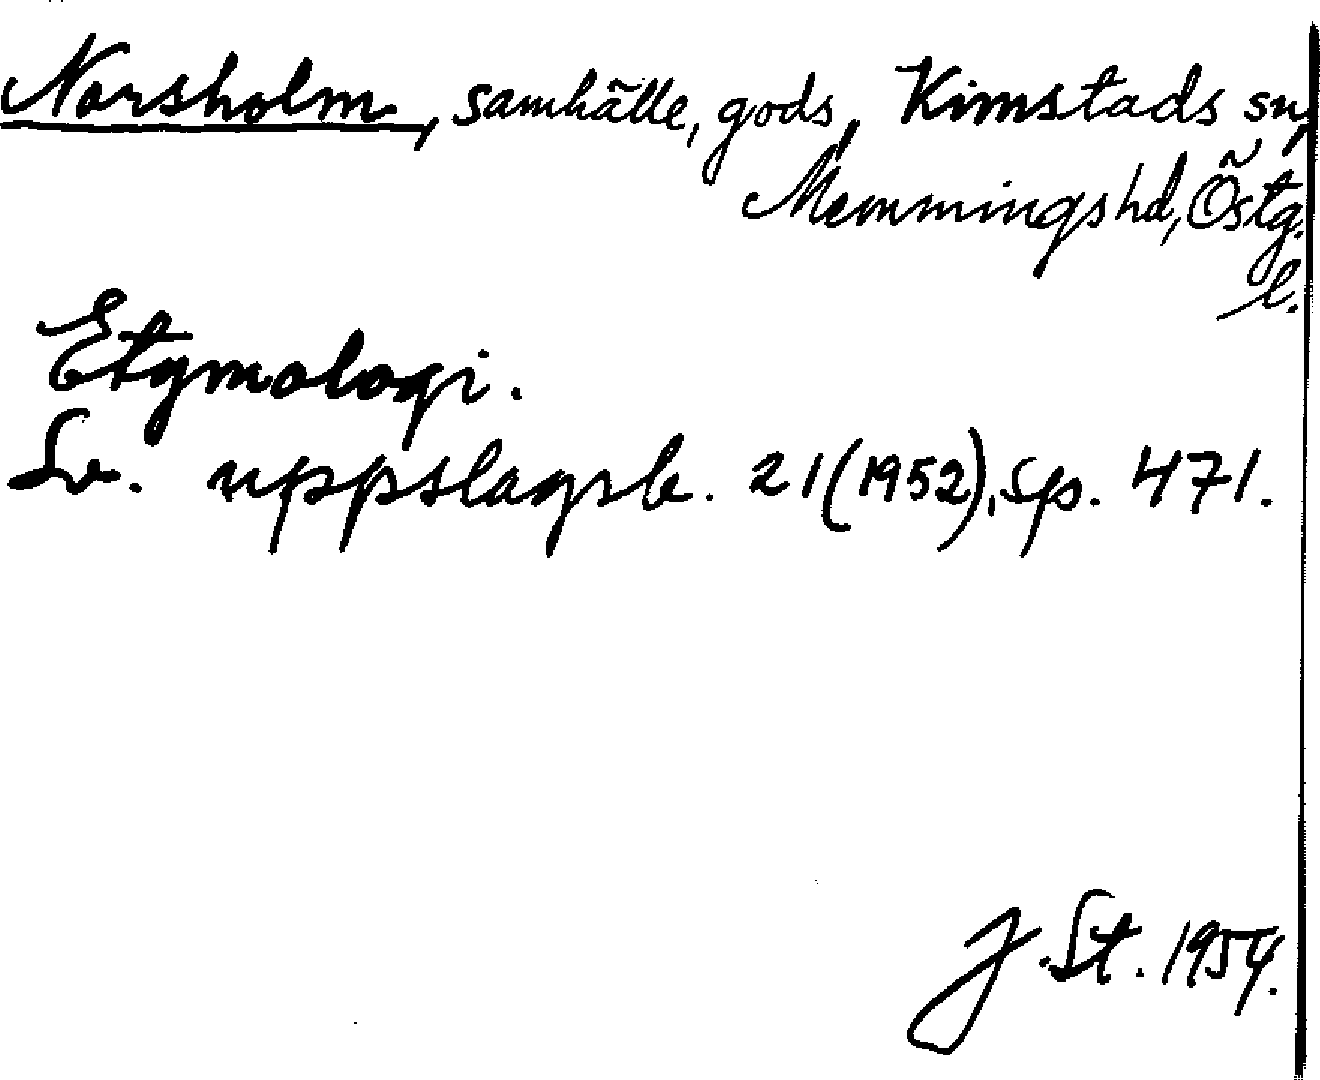 Norsholm, samhälle, gods, Kimstads sn,
Memmings hd, Östg.
l.
Etymologi.
Sv. uppslagsb. 21(1952), sp. 471.
J. St. 1954.